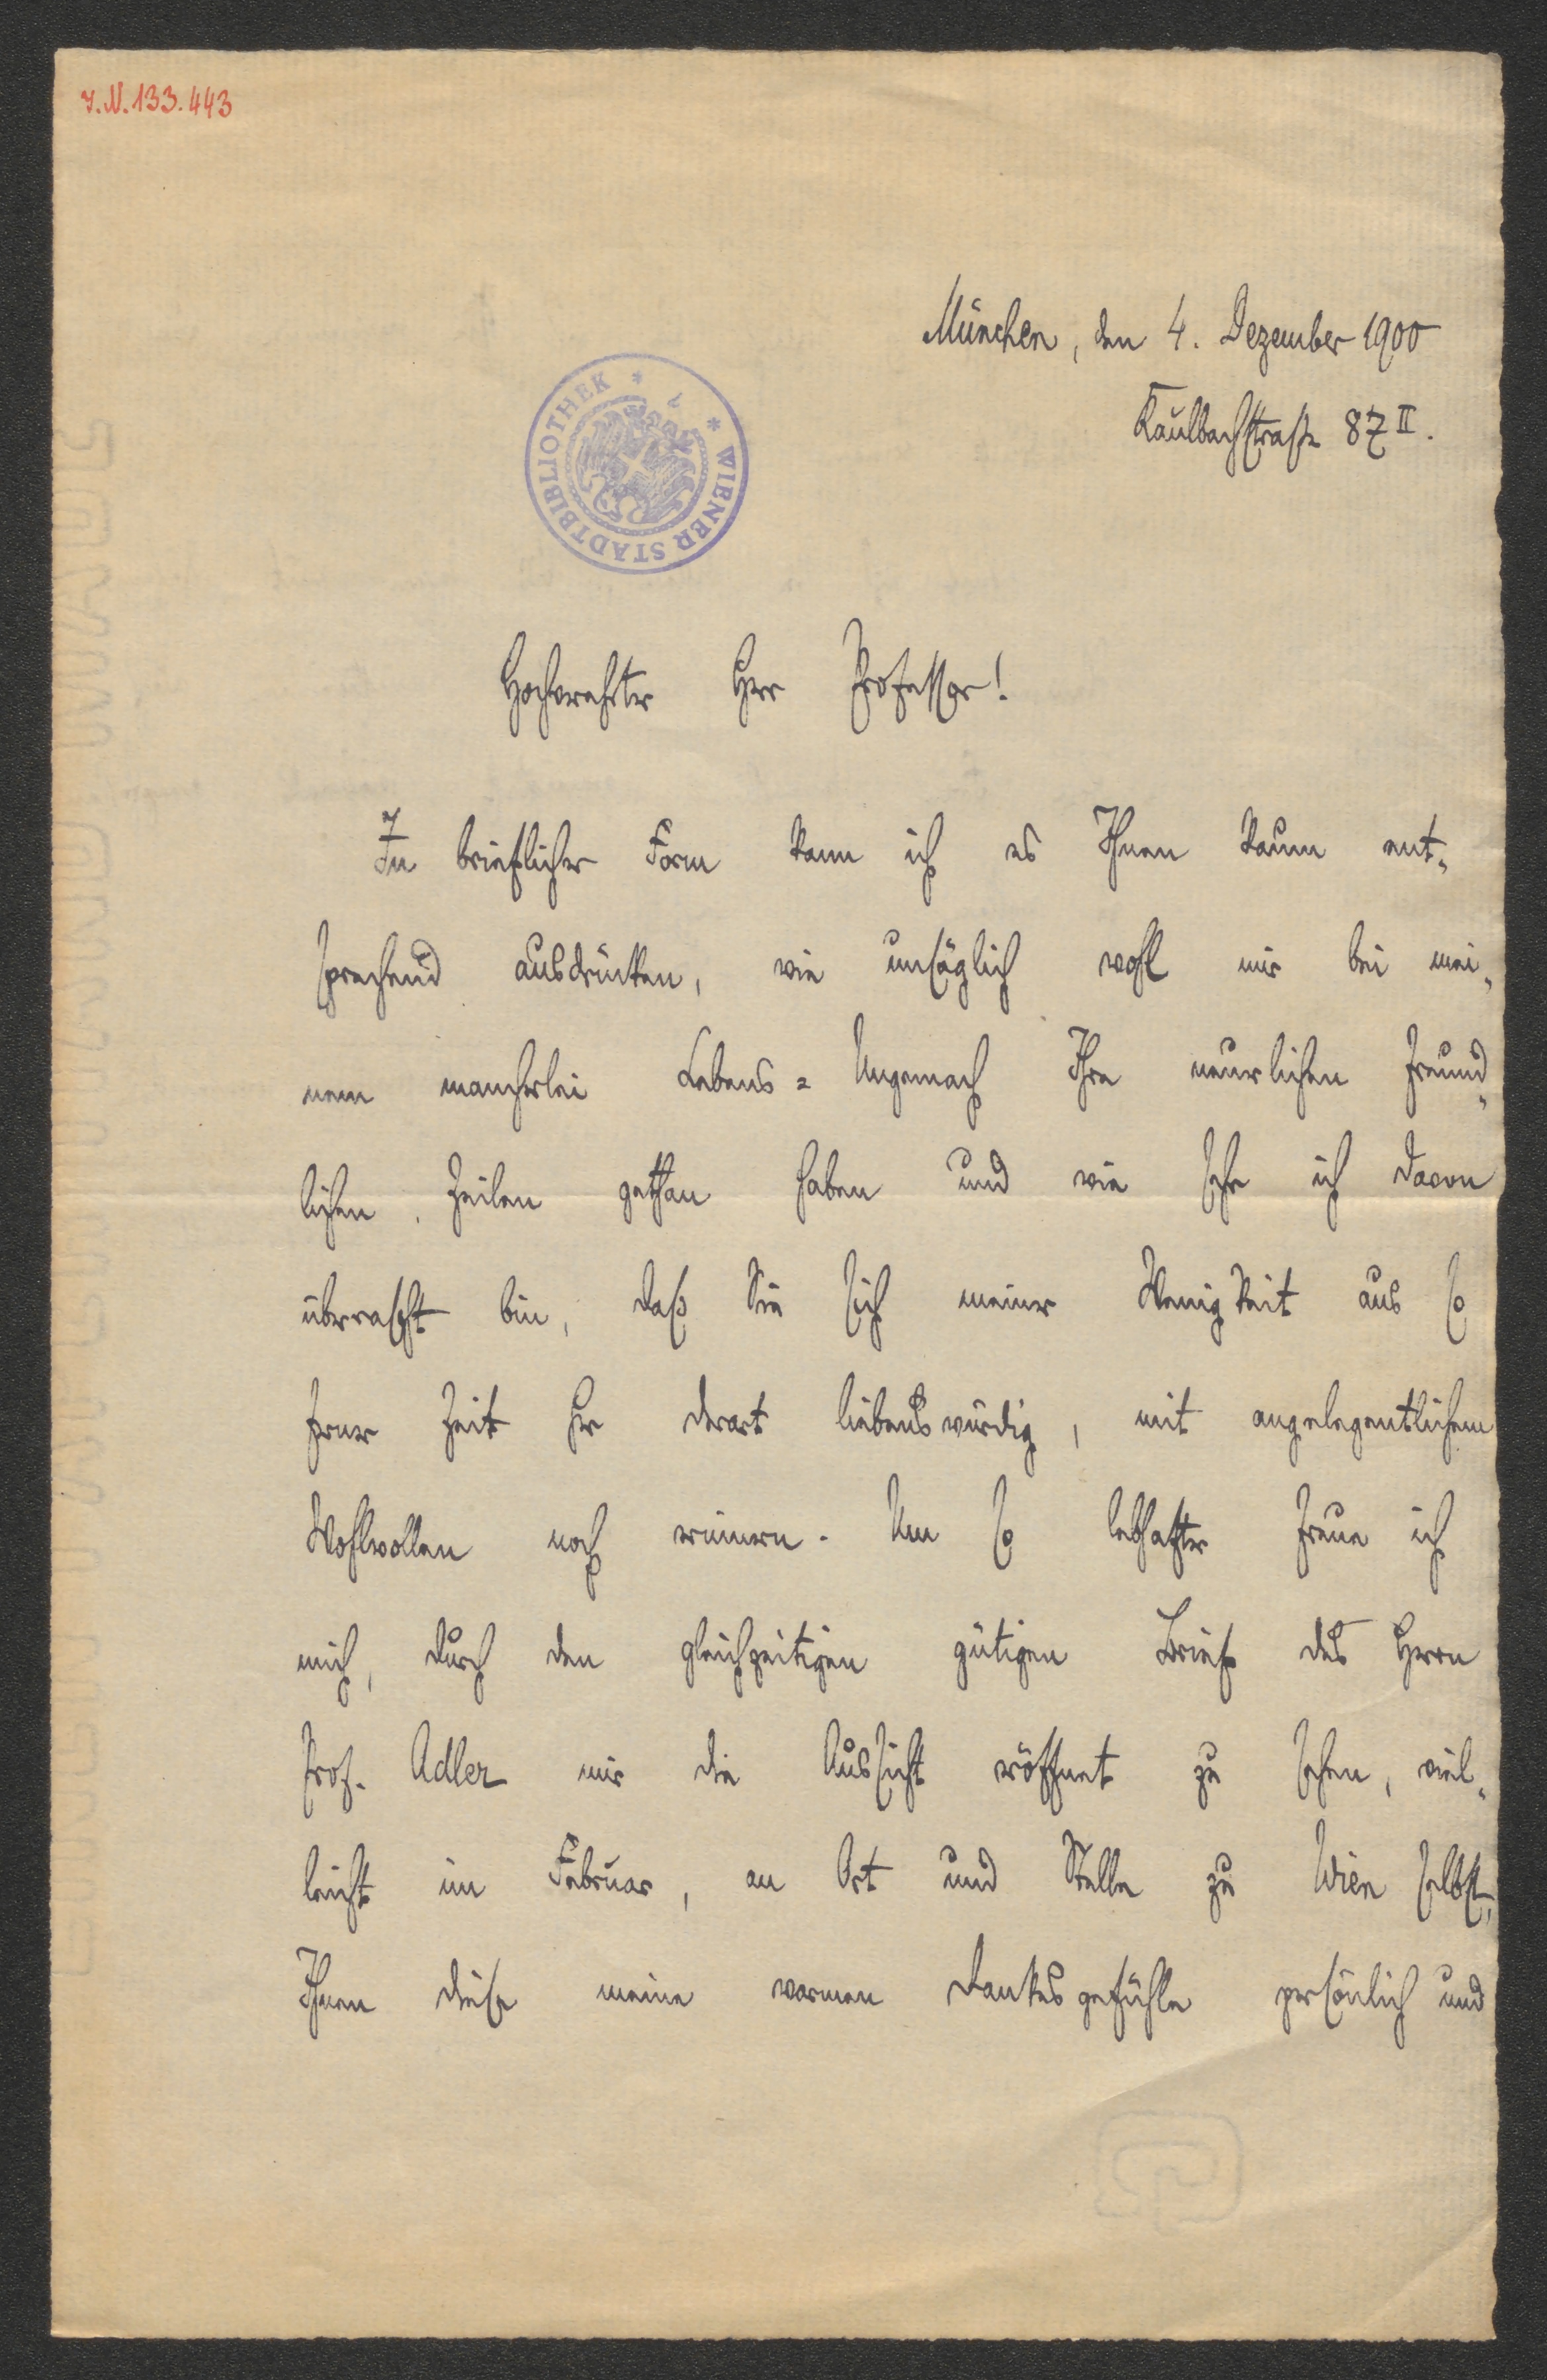 J.N. 133.443
München, den 4. Dezember 1900
Kaulbachstraße 87 II.
WIENER STADTBIBLIOTHEK
Hochverehrter Herr Professor!
In brieflicher Form kann ich es Ihnen kaum ent-
sprechend ausdrücken, wie unsäglich wohl mir bei mei-
nem mancherlei Lebens-Ungemach Ihre neuerlichen freund-
lichen Zeilen gethan haben und wie sehr ich davon
überrascht bin, daß Sie sich meiner Wenigkeit aus so
ferner Zeit her derart liebenswürdig, mit angelegentlichem
Wohlwollen noch erinnern. Um so lebhafter freue ich
mich, durch den gleichzeitigen gütigen Brief des Herrn
Prof. Adler mir die Aussicht eröffnet zu sehen, viel-
leicht im Februar, an Ort und Stelle zu Wien selbst,
Ihnen diese meine warmen Dankesgefühle persönlich und